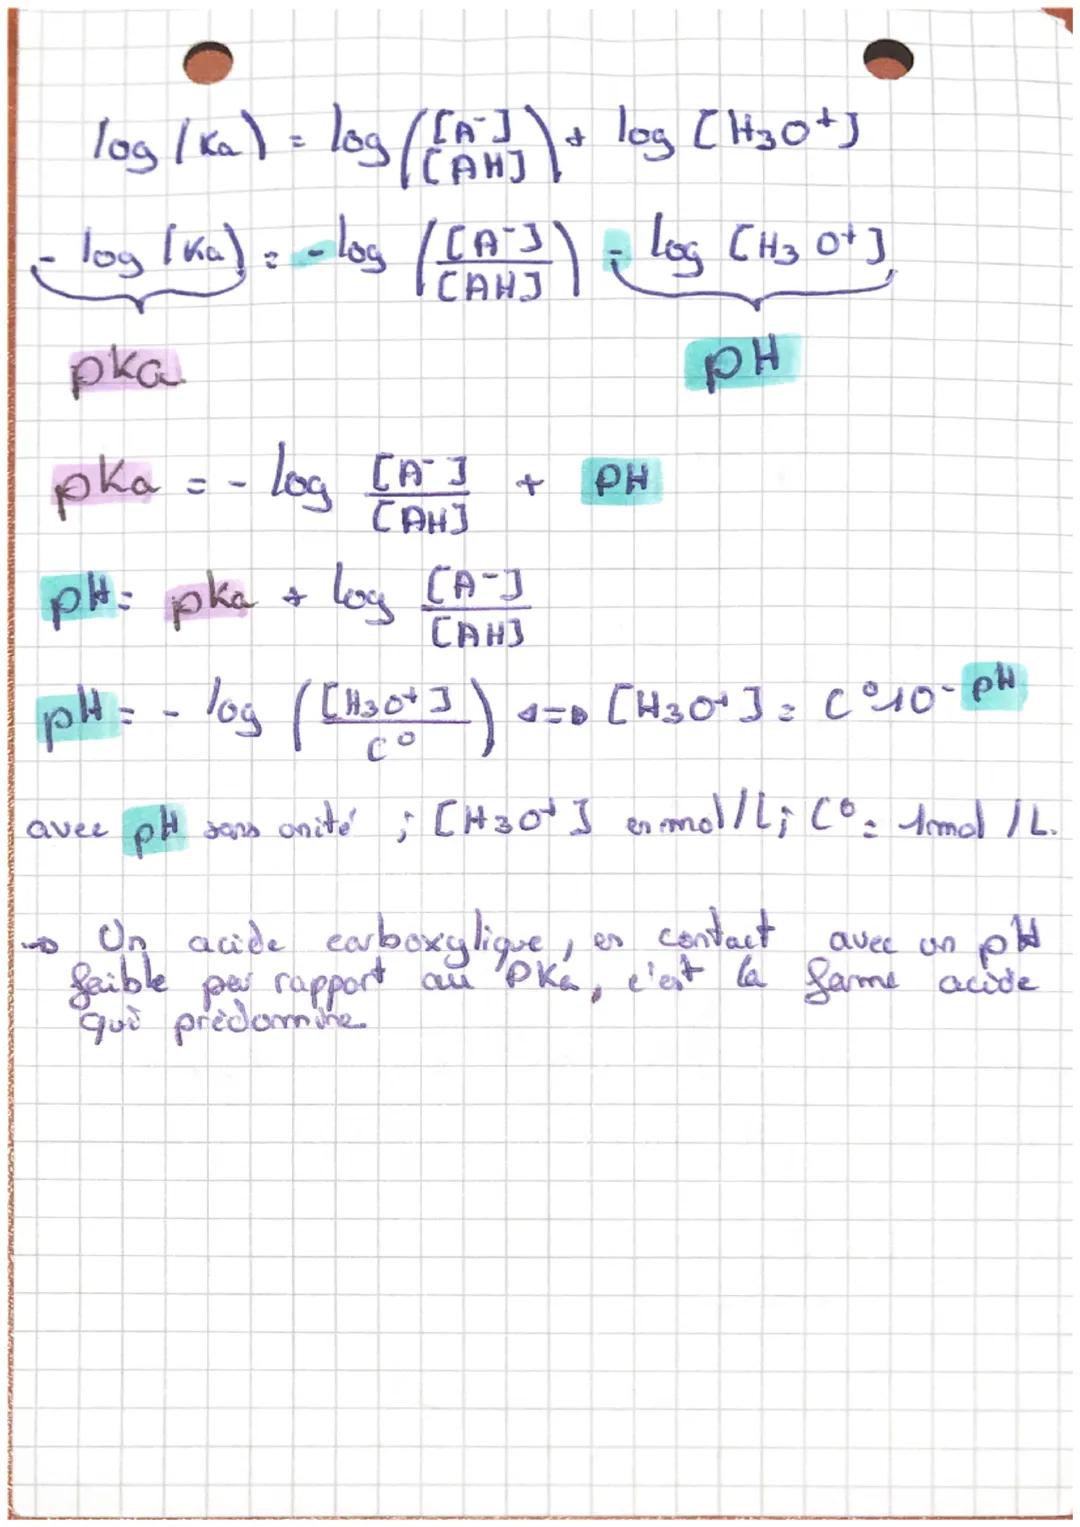 log (Ka) = log ([A⁻]/[AH]) + log [H3O+]
- log (Ka) = - log ([A⁻]/[AH]) - log [H3O+]
pKa pH
pKa = - log [A⁻]/[AH] + pH
pH = pKa + log [A⁻]/[AH]
pH = - log ([H3O+]/C°) <=> [H3O+] = C°10^-pH
avec pH sans unité ; [H3O+] en mol/L ; C° = 1mol/L.
→ Un acide carboxylique, en contact avec un pH
faible par rapport au pKa, c'est la forme acide
qui prédomine.